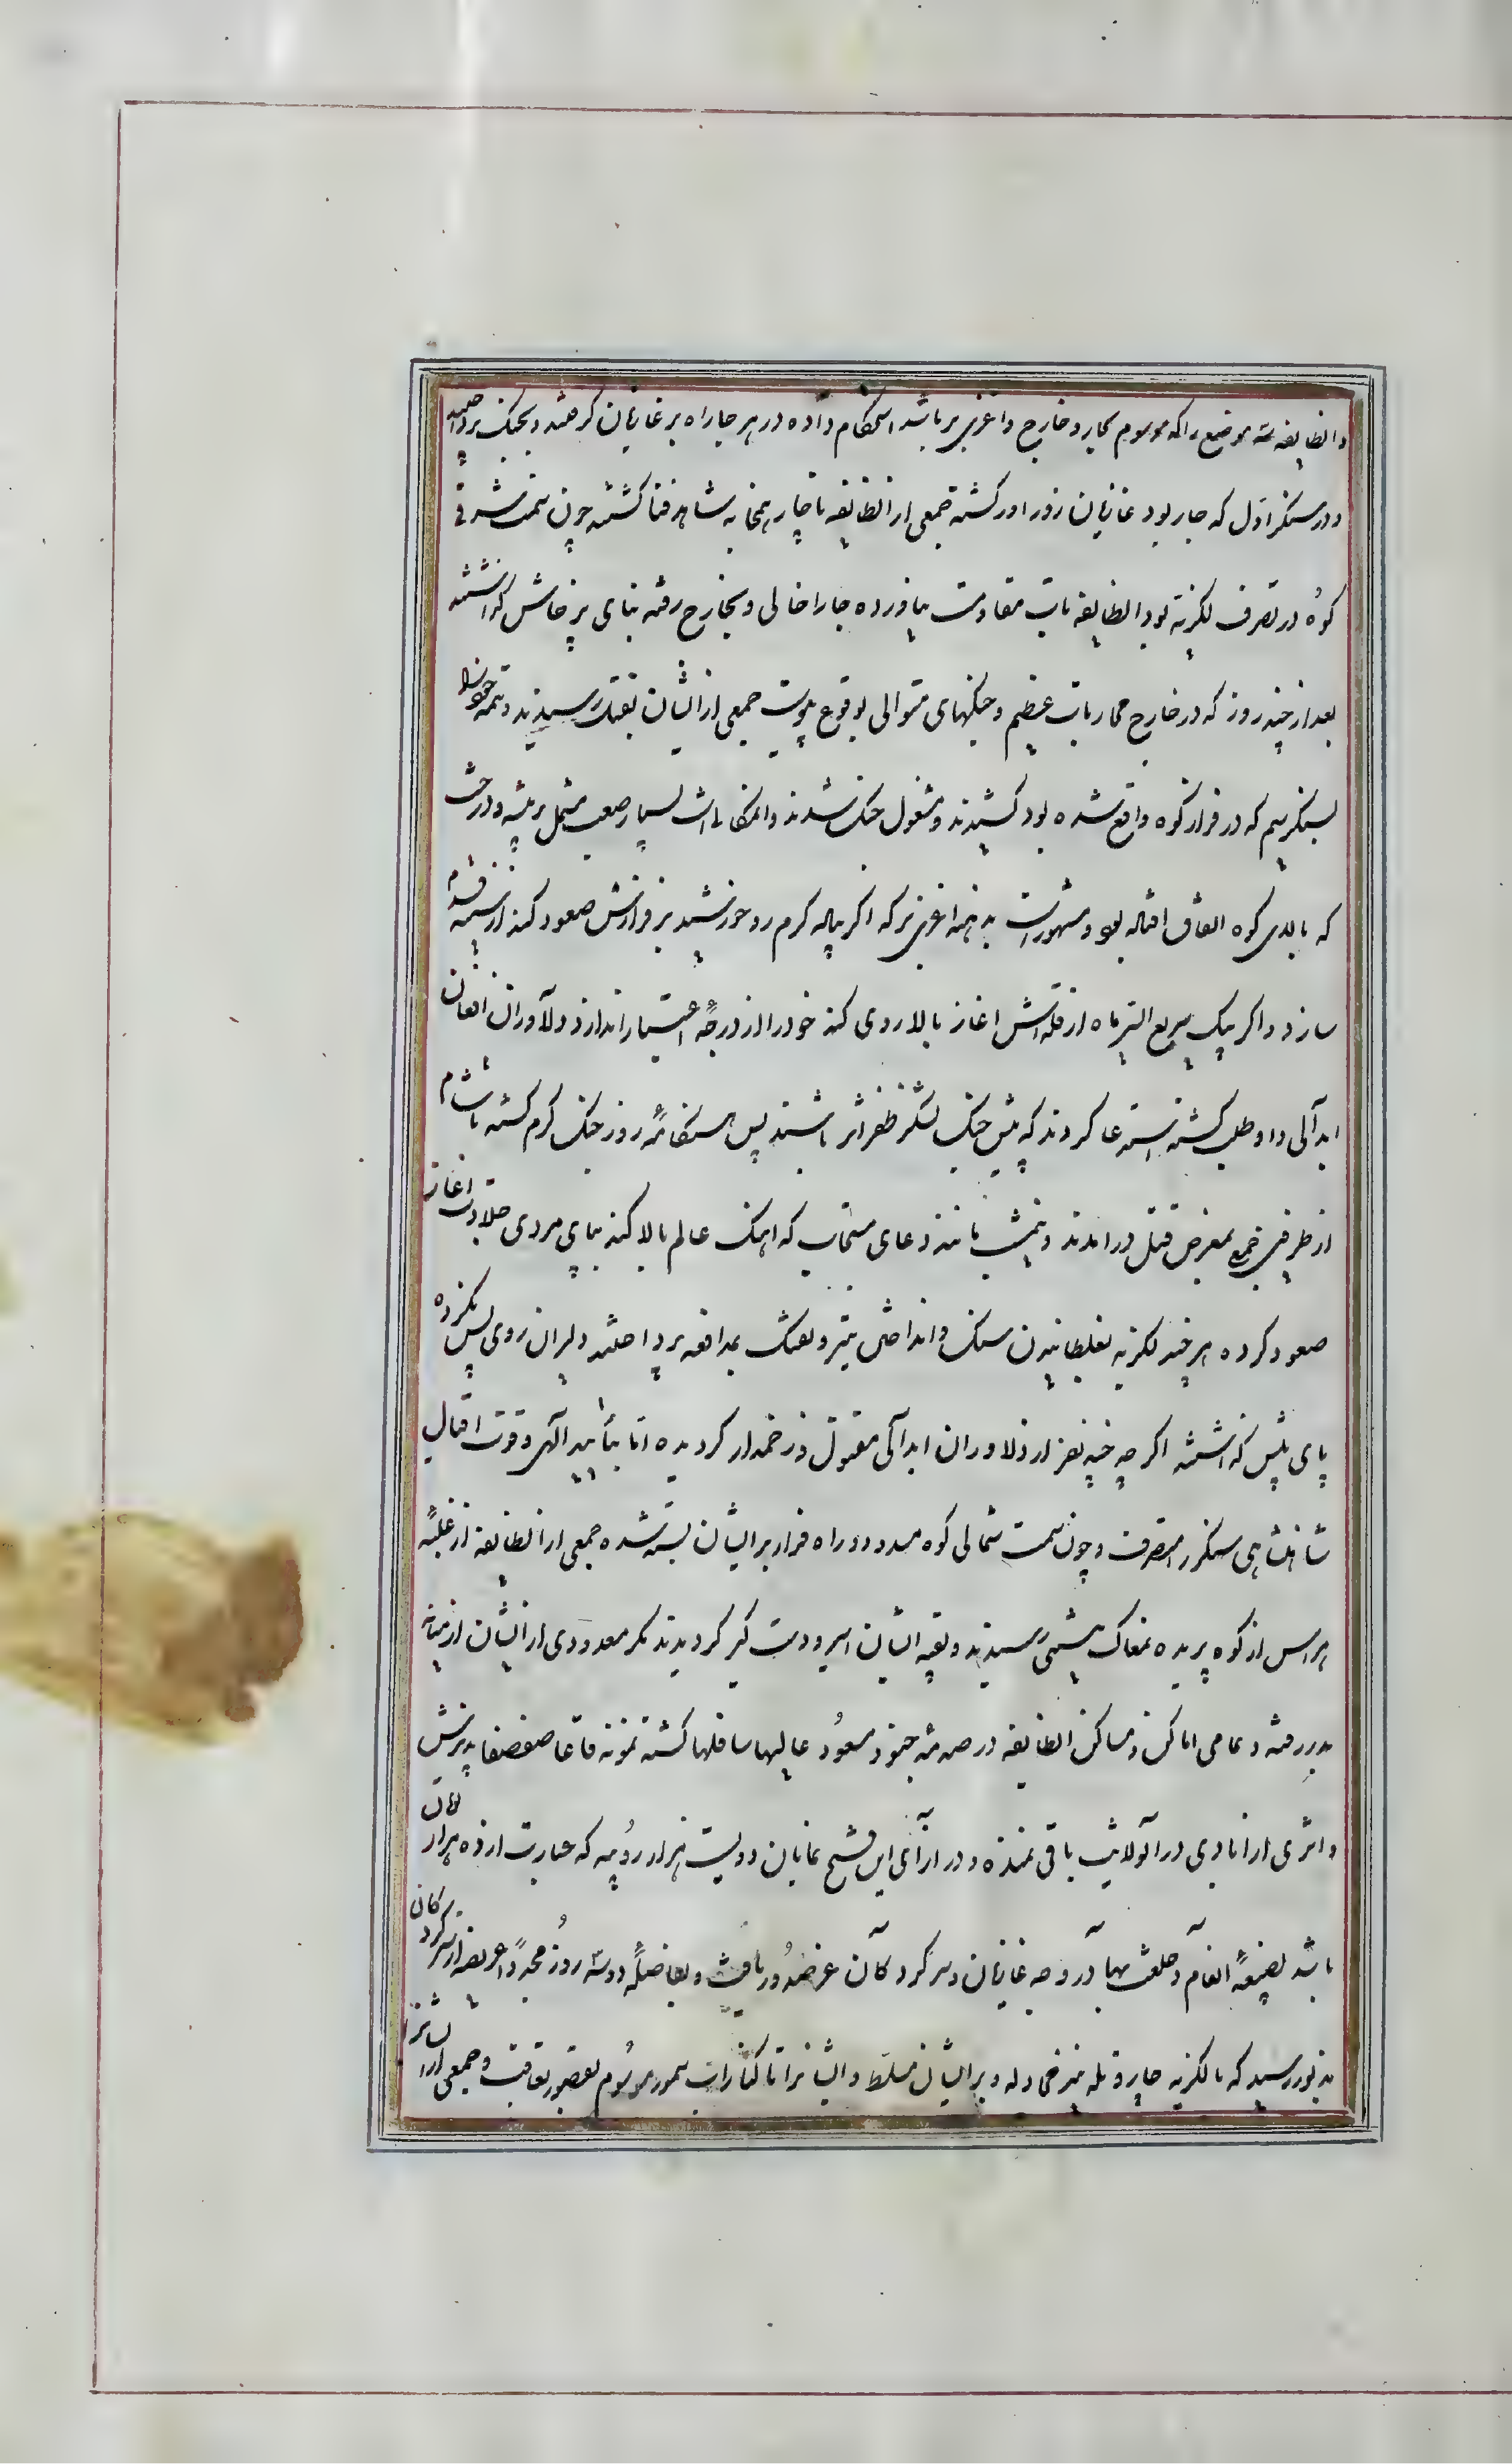 و انطایفه سه موضع را که موسوم بجار و خارج و اغزی بر باشد استحکام داده در هر جا راه بر غازیان گرفتند و بجنک پرداختند
و در سنکر اول که جار بود غازیان زور اور کشته جمعی از انطایفه ناچار پنجه به شاهد فنا کشته چون سمت شرقی
کوه در تصرف لکزیه بود انطایفه تاب مقاومت نیاورده جار را خالی و بخارج رفته بنای پرخاش گذاشتند
بعد از چند روز که در خارج محاربات عظیم و جنکهای متوالی بوقوع پیوست جمعی از ایشان بقتل رسیدند و تتمه خود را
بسنکر سیم که در فراز کوه واقع شده بود کشیدند و مشغول جنک شدند و انمکانی است بسیار صعب مشتمل بر بیشه و درخت
که با بلدی کوه اتفاق افتاده بود و مشهور است به اغزی بر که اکر پیاله کرم رو خورشید بر فرازش صعود کند از سیمه قدم
سازد و اکر پیک سریع السیر ماه از قله اش اغاز بالا روی کند خود را از درجه اعتبار اندازد دلاوران افغان
ابدآلی داوطلب کشته استدعا کردند که پیش جنک لشکر ظفر اثر باشند پس هنکامه روز جنک کرم کشته تا شام
از طرفین جمعی بمعرض قتل درامدند و نیمشب مانند دعای مستجاب که اهنک عالم بالا کند بپای مردی جلادت اغاز
صعود کرده هر چند لکزیه بغلطانیدن سنک و انداختن تیر و تفنک بمدافعه پرداختند دلیران روی پس نکرده
پای پیش گذاشتند اکر چه چند نفر از دلاوران ابدآلی مقتول و زخمدار کردیده اما بتأئید الهی و قوت اقبال
شاهنشاهی سنکر را متصرف و چون سمت شمالی کوه مسدود و راه فرار بر ایشان بسته شده جمعی از انطایفه از غلبه
هراس از کوه پریده بمغاک نیستی رسیدند و بقیه ایشان اسیر و دست کیر کردیدند مکر معدودی از ایشان از میانه
بدر رفته و تمامی اماکن و مساکن انطایفه در صدمه جنود مسعود عالیها سافلها کشته نمونه قاعا صفصفا پذیرش
و اثری از ابادی در آنولایت باقی نمانده و در ازآی این فتح نمایان دویست هزار روپیه که عبارت از ده هزار تومان
باشد بصیغه انعام و خلعت بها در وجه غازیان و سرکردکان عرضه وریافت و بفاصله دو سه روز مجدداً عریضه از سرکردکان
مذبور رسید که با لکزیه جار و تله نیز دله و بر ایشان مسلط و ایشانرا تا کنار اب سمور مرسوم بقصور تعاقب و جمعی از ایشانرا